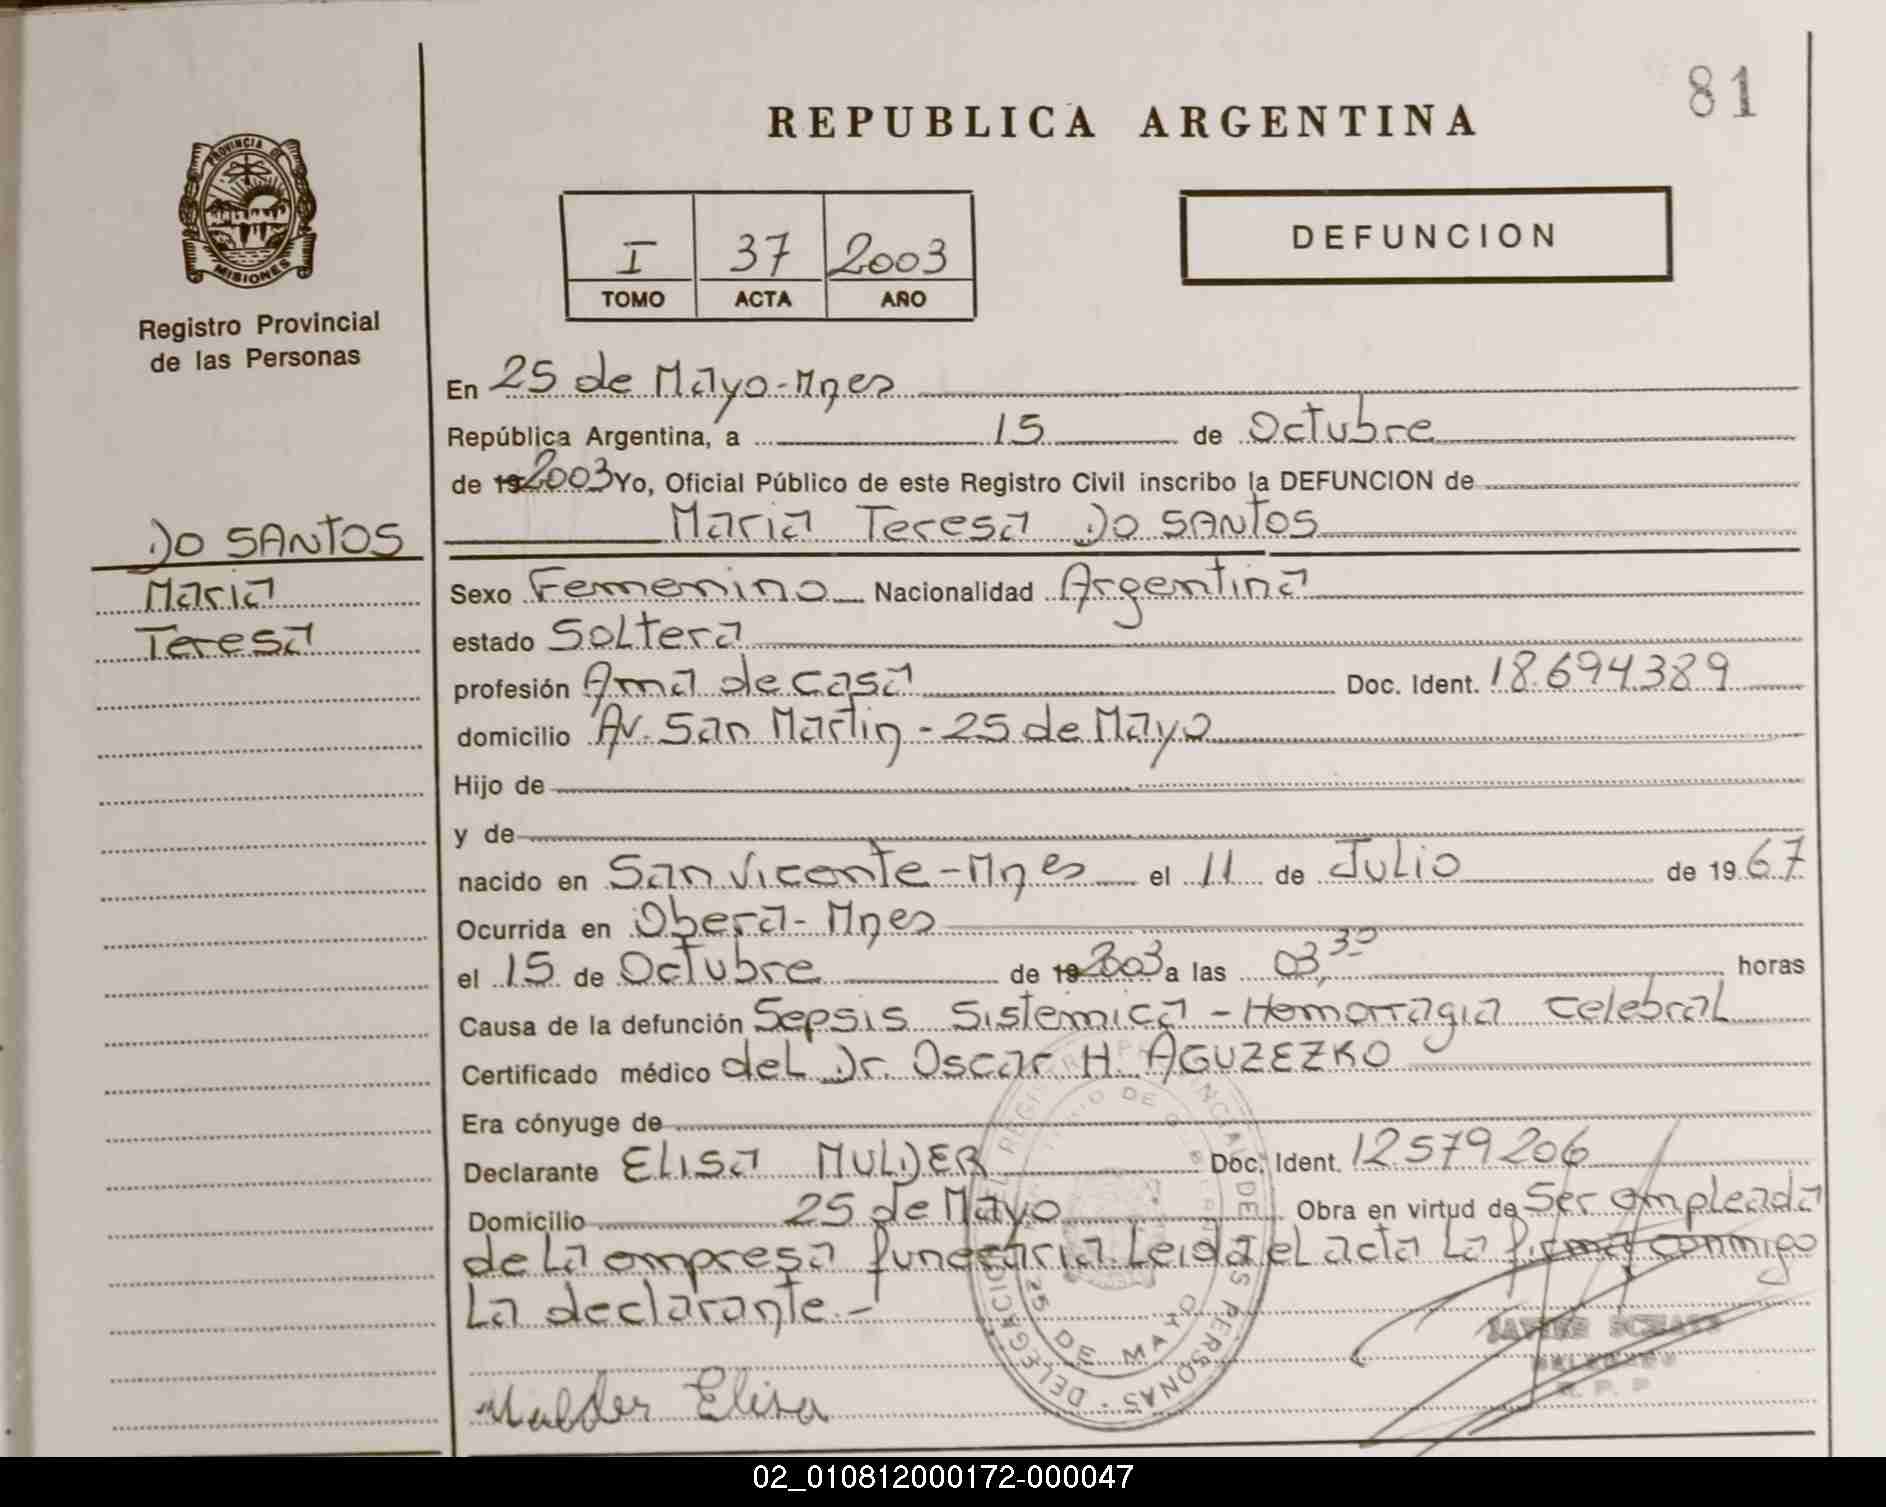 81
REPUBLICA ARGENTINA
PROVINCIA DE
MISIONES
Registro Provincial
de las Personas
I 37 2003
TOMO ACTA AÑO
DEFUNCION
En 25 de Mayo-Mnes
República Argentina, a 15 de Octubre
de 192003 Yo, Oficial Público de este Registro Civil inscribo la DEFUNCION de
Maria Teresa Do SANTOS
DO SANTOS
Maria
Teresa
Sexo Femenino Nacionalidad Argentina
estado Soltera
profesión Ama de casa Doc. Ident. 18.694.389
domicilio Av. San Martin - 25 de Mayo
Hijo de
y de
nacido en San Vicente-Mnes el 11 de Julio de 1967
Ocurrida en Obera-Mnes
el 15 de Octubre de 192003 a las 03,30 horas
Causa de la defunción Sepsis Sistemica - Hemorragia Celebral
Certificado médico del Dr. Oscar H. AGUZEZKO
Era cónyuge de
Declarante ELISA MULDER Doc. Ident. 12579206
Domicilio 25 de Mayo Obra en virtud de Ser empleada
de la empresa funeraria. Leida el acta la firma conmigo
La declarante.-
Mulder Elisa
DELEGACION
25 DE MAYO
PERSONAS
02_010812000172-000047